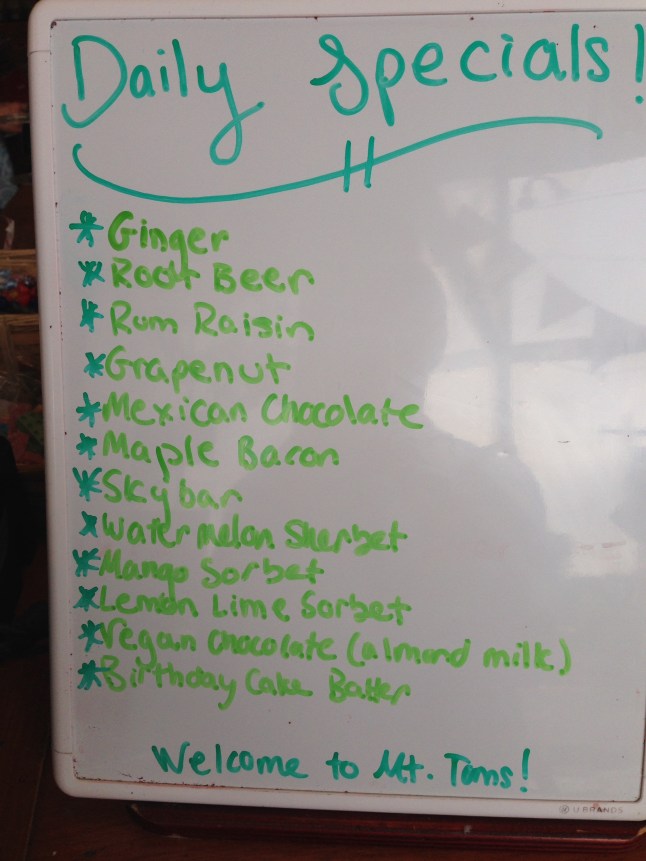 Daily Specials!
* Ginger
* Root Beer
* Rum Raisin
* Grapenut
* Mexican Chocolate
* Maple Bacon
* Skybar
* Watermelon Sherbet
* Mango Sorbet
* Lemon Lime Sorbet
* Vegan Chocolate (almond milk)
* Birthday Cake Batter
Welcome to Mt. Toms!
U BRANDS